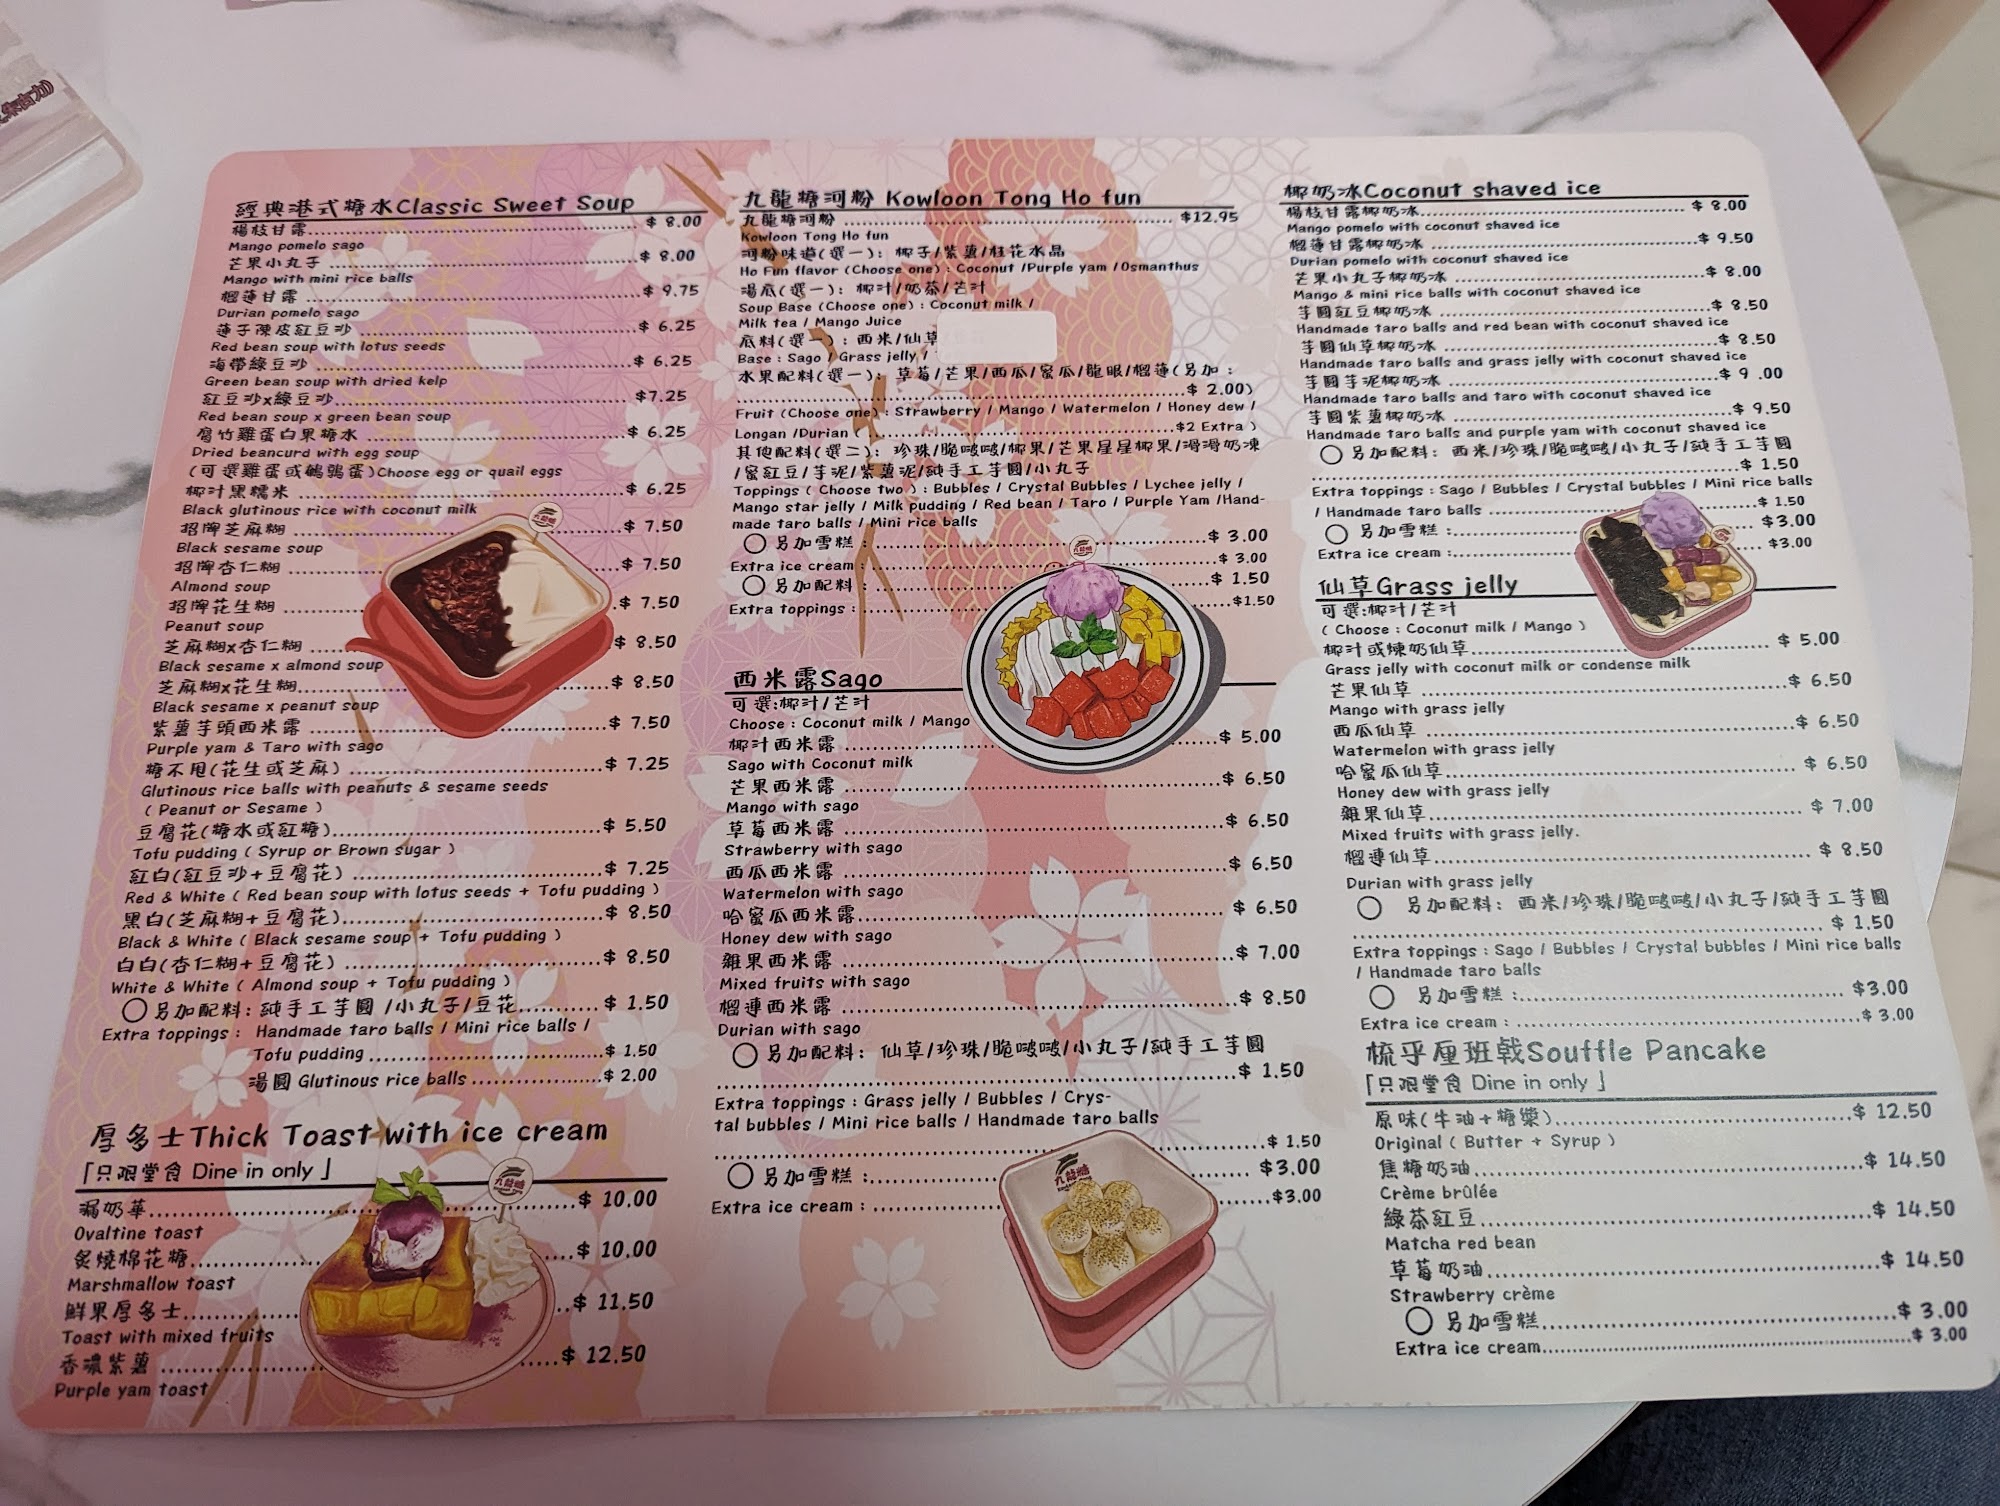 經典港式糖水Classic Sweet Soup
楊枝甘露 $ 8.00
Mango pomelo sago
芒果小丸子 $ 8.00
Mango with mini rice balls
榴蓮甘露 $ 9.75
Durian pomelo sago
蓮子陳皮紅豆沙 $ 6.25
Red bean soup with lotus seeds
海帶綠豆沙 $ 6.25
Green bean soup with dried kelp
紅豆沙x綠豆沙 $7.25
Red bean soup x green bean soup
腐竹雞蛋白果糖水 $ 6.25
Dried beancurd with egg soup
(可選雞蛋或鵪鶉蛋)Choose egg or quail eggs
椰汁黑糯米 $ 6.25
Black glutinous rice with coconut milk
招牌芝麻糊 $ 7.50
Black sesame soup
招牌杏仁糊 $ 7.50
Almond soup
招牌花生糊 $ 7.50
Peanut soup
芝麻糊x杏仁糊 $ 8.50
Black sesame x almond soup
芝麻糊x花生糊 $ 8.50
Black sesame x peanut soup
紫薯芋頭西米露 $ 7.50
Purple yam & Taro with sago
糖不甩(花生或芝麻) $ 7.25
Glutinous rice balls with peanuts & sesame seeds
( Peanut or Sesame )
豆腐花(糖水或紅糖) $ 5.50
Tofu pudding ( Syrup or Brown sugar )
紅白(紅豆沙+豆腐花) $ 7.25
Red & White ( Red bean soup with lotus seeds + Tofu pudding )
黑白(芝麻糊+豆腐花) $ 8.50
Black & White ( Black sesame soup + Tofu pudding )
白白(杏仁糊+豆腐花) $ 8.50
White & White ( Almond soup + Tofu pudding )
另加配料: 純手工芋圓 /小丸子/豆花 $ 1.50
Extra toppings : Handmade taro balls / Mini rice balls /
Tofu pudding $ 1.50
湯圓 Glutinous rice balls $ 2.00
厚多士Thick Toast with ice cream
「只限堂食 Dine in only 」
漏奶華 $ 10.00
Ovaltine toast
炙燒棉花糖 $ 10.00
Marshmallow toast
鮮果厚多士 $ 11.50
Toast with mixed fruits
香濃紫薯 $ 12.50
Purple yam toast
九龍糖河粉 Kowloon Tong Ho fun
九龍糖河粉 $12.95
Kowloon Tong Ho fun
河粉味道(選一): 椰子/紫薯/桂花水晶
Ho Fun flavor (Choose one) : Coconut /Purple yam /Osmanthus
湯底(選一): 椰汁/奶茶/芒汁
Soup Base (Choose one) : Coconut milk /
Milk tea / Mango Juice
底料(選一) : 西米/仙草
Base : Sago / Grass jelly /
水果配料(選一): 草莓/芒果/西瓜/蜜瓜/龍眼/榴蓮(另加 :
$ 2.00)
Fruit (Choose one) : Strawberry / Mango / Watermelon / Honey dew /
Longan /Durian ( $2 Extra )
其他配料(選二): 珍珠/脆啵啵/椰果/芒果星星椰果/滑滑奶凍
/蜜紅豆/芋泥/紫薯泥/純手工芋圓/小丸子
Toppings ( Choose two ) : Bubbles / Crystal Bubbles / Lychee jelly /
Mango star jelly / Milk pudding / Red bean / Taro / Purple Yam /Hand-
made taro balls / Mini rice balls
另加雪糕 : $ 3.00
Extra ice cream : $ 3.00
另加配料: $ 1.50
Extra toppings : $1.50
九龍糖
西米露Sago
可選:椰汁/芒汁
Choose : Coconut milk / Mango
椰汁西米露 $ 5.00
Sago with Coconut milk
芒果西米露 $ 6.50
Mango with sago
草莓西米露 $ 6.50
Strawberry with sago
西瓜西米露 $ 6.50
Watermelon with sago
哈蜜瓜西米露 $ 6.50
Honey dew with sago
雜果西米露 $ 7.00
Mixed fruits with sago
榴連西米露 $ 8.50
Durian with sago
另加配料: 仙草/珍珠/脆啵啵/小丸子/純手工芋圓
$ 1.50
Extra toppings : Grass jelly / Bubbles / Crys-
tal bubbles / Mini rice balls / Handmade taro balls
$ 1.50
另加雪糕: $3.00
Extra ice cream : $3.00
九龍糖
椰奶冰Coconut shaved ice
楊枝甘露椰奶冰 $ 8.00
Mango pomelo with coconut shaved ice
榴蓮甘露椰奶冰 $ 9.50
Durian pomelo with coconut shaved ice
芒果小丸子椰奶冰 $ 8.00
Mango & mini rice balls with coconut shaved ice
芋圓紅豆椰奶冰 $ 8.50
Handmade taro balls and red bean with coconut shaved ice
芋圓仙草椰奶冰 $ 8.50
Handmade taro balls and grass jelly with coconut shaved ice
芋圓芋泥椰奶冰 $ 9 .00
Handmade taro balls and taro with coconut shaved ice
芋圓紫薯椰奶冰 $ 9.50
Handmade taro balls and purple yam with coconut shaved ice
另加配料: 西米/珍珠/脆啵啵/小丸子/純手工芋圓
$ 1.50
Extra toppings : Sago / Bubbles / Crystal bubbles / Mini rice balls
/ Handmade taro balls $ 1.50
另加雪糕: $3.00
Extra ice cream : $3.00
仙草Grass jelly
可選:椰汁/芒汁
( Choose : Coconut milk / Mango )
椰汁或煉奶仙草 $ 5.00
Grass jelly with coconut milk or condense milk
芒果仙草 $ 6.50
Mango with grass jelly
西瓜仙草 $ 6.50
Watermelon with grass jelly
哈蜜瓜仙草 $ 6.50
Honey dew with grass jelly
雜果仙草 $ 7.00
Mixed fruits with grass jelly.
榴連仙草 $ 8.50
Durian with grass jelly
另加配料: 西米/珍珠/脆啵啵/小丸子/純手工芋圓
$ 1.50
Extra toppings : Sago / Bubbles / Crystal bubbles / Mini rice balls
/ Handmade taro balls
另加雪糕 : $3.00
Extra ice cream : $ 3.00
梳乎厘班戟Souffle Pancake
「只限堂食 Dine in only 」
原味(牛油+糖漿) $ 12.50
Original ( Butter + Syrup )
焦糖奶油 $ 14.50
Crème brûlée
綠茶紅豆 $ 14.50
Matcha red bean
草莓奶油 $ 14.50
Strawberry crème
另加雪糕 $ 3.00
Extra ice cream $ 3.00